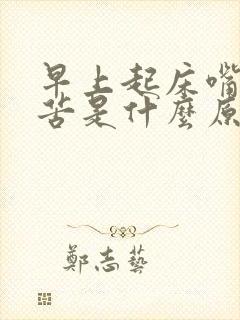 早上起床嘴
苦是什麼原
鄭志藝